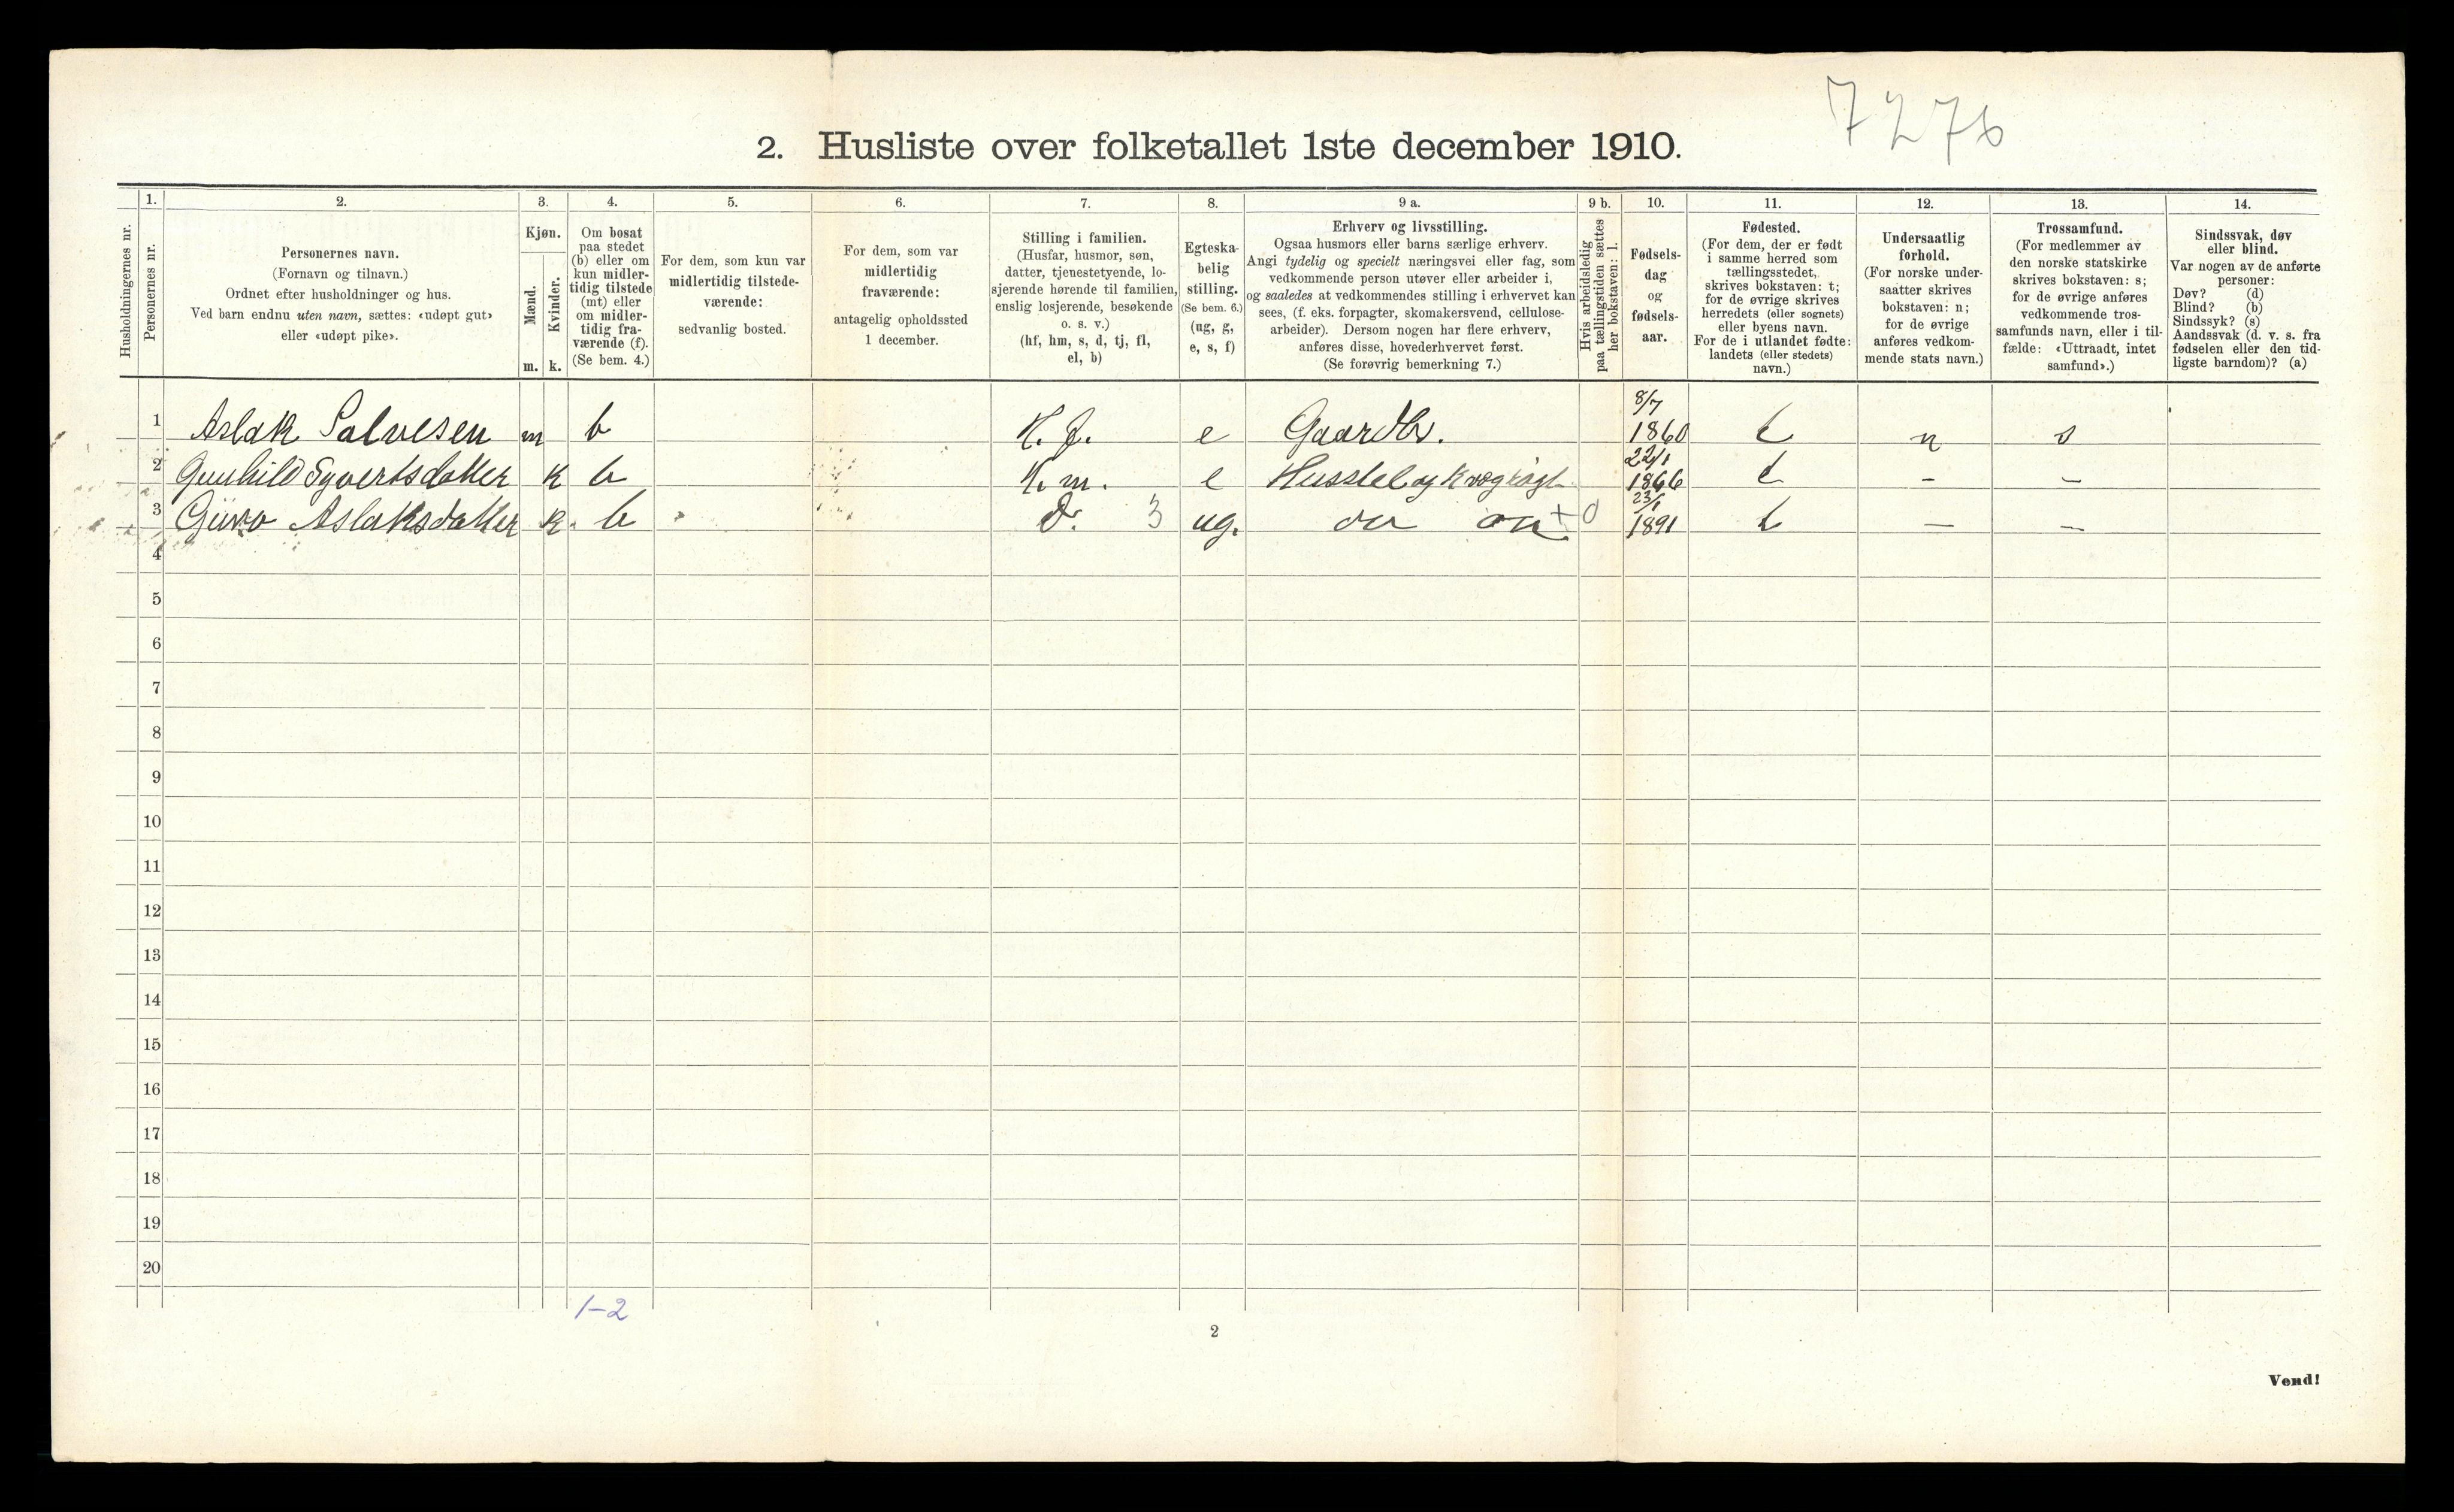 7276
2. Husliste over folketallet 1ste december 1910.
Husholdningernes nr.
1. Personernes nr.
2. Personernes navn.
(Fornavn og tilnavn.)
Ordnet efter husholdninger og hus.
Ved barn endnu uten navn, sættes: «udøpt gut»
eller «udøpt pike».
3. Kjøn.
Mænd. Kvinder.
m. k.
4. Om bosat
paa stedet
(b) eller om
kun midler-
tidig tilstede
(mt) eller
om midler-
tidig fra-
værende (f).
(Se bem. 4.)
5. For dem, som kun var
midlertidig tilstede-
værende:
sedvanlig bosted.
6. For dem, som var
midlertidig
fraværende:
antagelig opholdssted
1 december.
7. Stilling i familien.
(Husfar, husmor, søn,
datter, tjenestetyende, lo-
sjerende hørende til familien,
enslig losjerende, besøkende
o. s. v.)
(hf, hm, s, d, tj, fl,
el, b)
8. Egteska-
belig
stilling.
(Se bem. 6.)
(ug, g,
e, s, f)
9 a. Erhverv og livsstilling.
Ogsaa husmors eller barns særlige erhverv.
Angi tydelig og specielt næringsvei eller fag, som
vedkommende person utøver eller arbeider i,
og saaledes at vedkommendes stilling i erhvervet kan
sees, (f. eks. forpagter, skomakersvend, cellulose-
arbeider). Dersom nogen har flere erhverv,
anføres disse, hovederhvervet først.
(Se forøvrig bemerkning 7.)
9 b. Hvis arbeidsledig
paa tællingstiden sættes
her bokstaven: l.
10. Fødsels-
dag
og
fødsels-
aar.
11. Fødested.
(For dem, der er født
i samme herred som
tællingsstedet,
skrives bokstaven: t;
for de øvrige skrives
herredets (eller sognets)
eller byens navn.
For de i utlandet fødte:
landets (eller stedets)
navn.)
12. Undersaatlig
forhold.
(For norske under-
saatter skrives
bokstaven: n;
for de øvrige
anføres vedkom-
mende stats navn.)
13. Trossamfund.
(For medlemmer av
den norske statskirke
skrives bokstaven: s;
for de øvrige anføres
vedkommende tros-
samfunds navn, eller i til-
fælde: «Uttraadt, intet
samfund».)
14. Sindssvak, døv
eller blind.
Var nogen av de anførte
personer:
Døv? (d)
Blind? (b)
Sindssyk? (s)
Aandssvak (d. v. s. fra
fødselen eller den tid-
ligste barndom)? (a)
1 Aslak Salvesen m b H. f. e Gaardbr. 8/7 1860 t n s
2 Gunhild Syvertsdatter k b H. m. e Husstel og Kvægrögt 22/1 1866 t - -
3 Guro Aslaksdatter k. b D. 3 ug. do do + 0 23/1 1891 t — —
4
5
6
7
8
9
10
11
12
13
14
15
16
17
18
19
20
1-2
2
Vend!